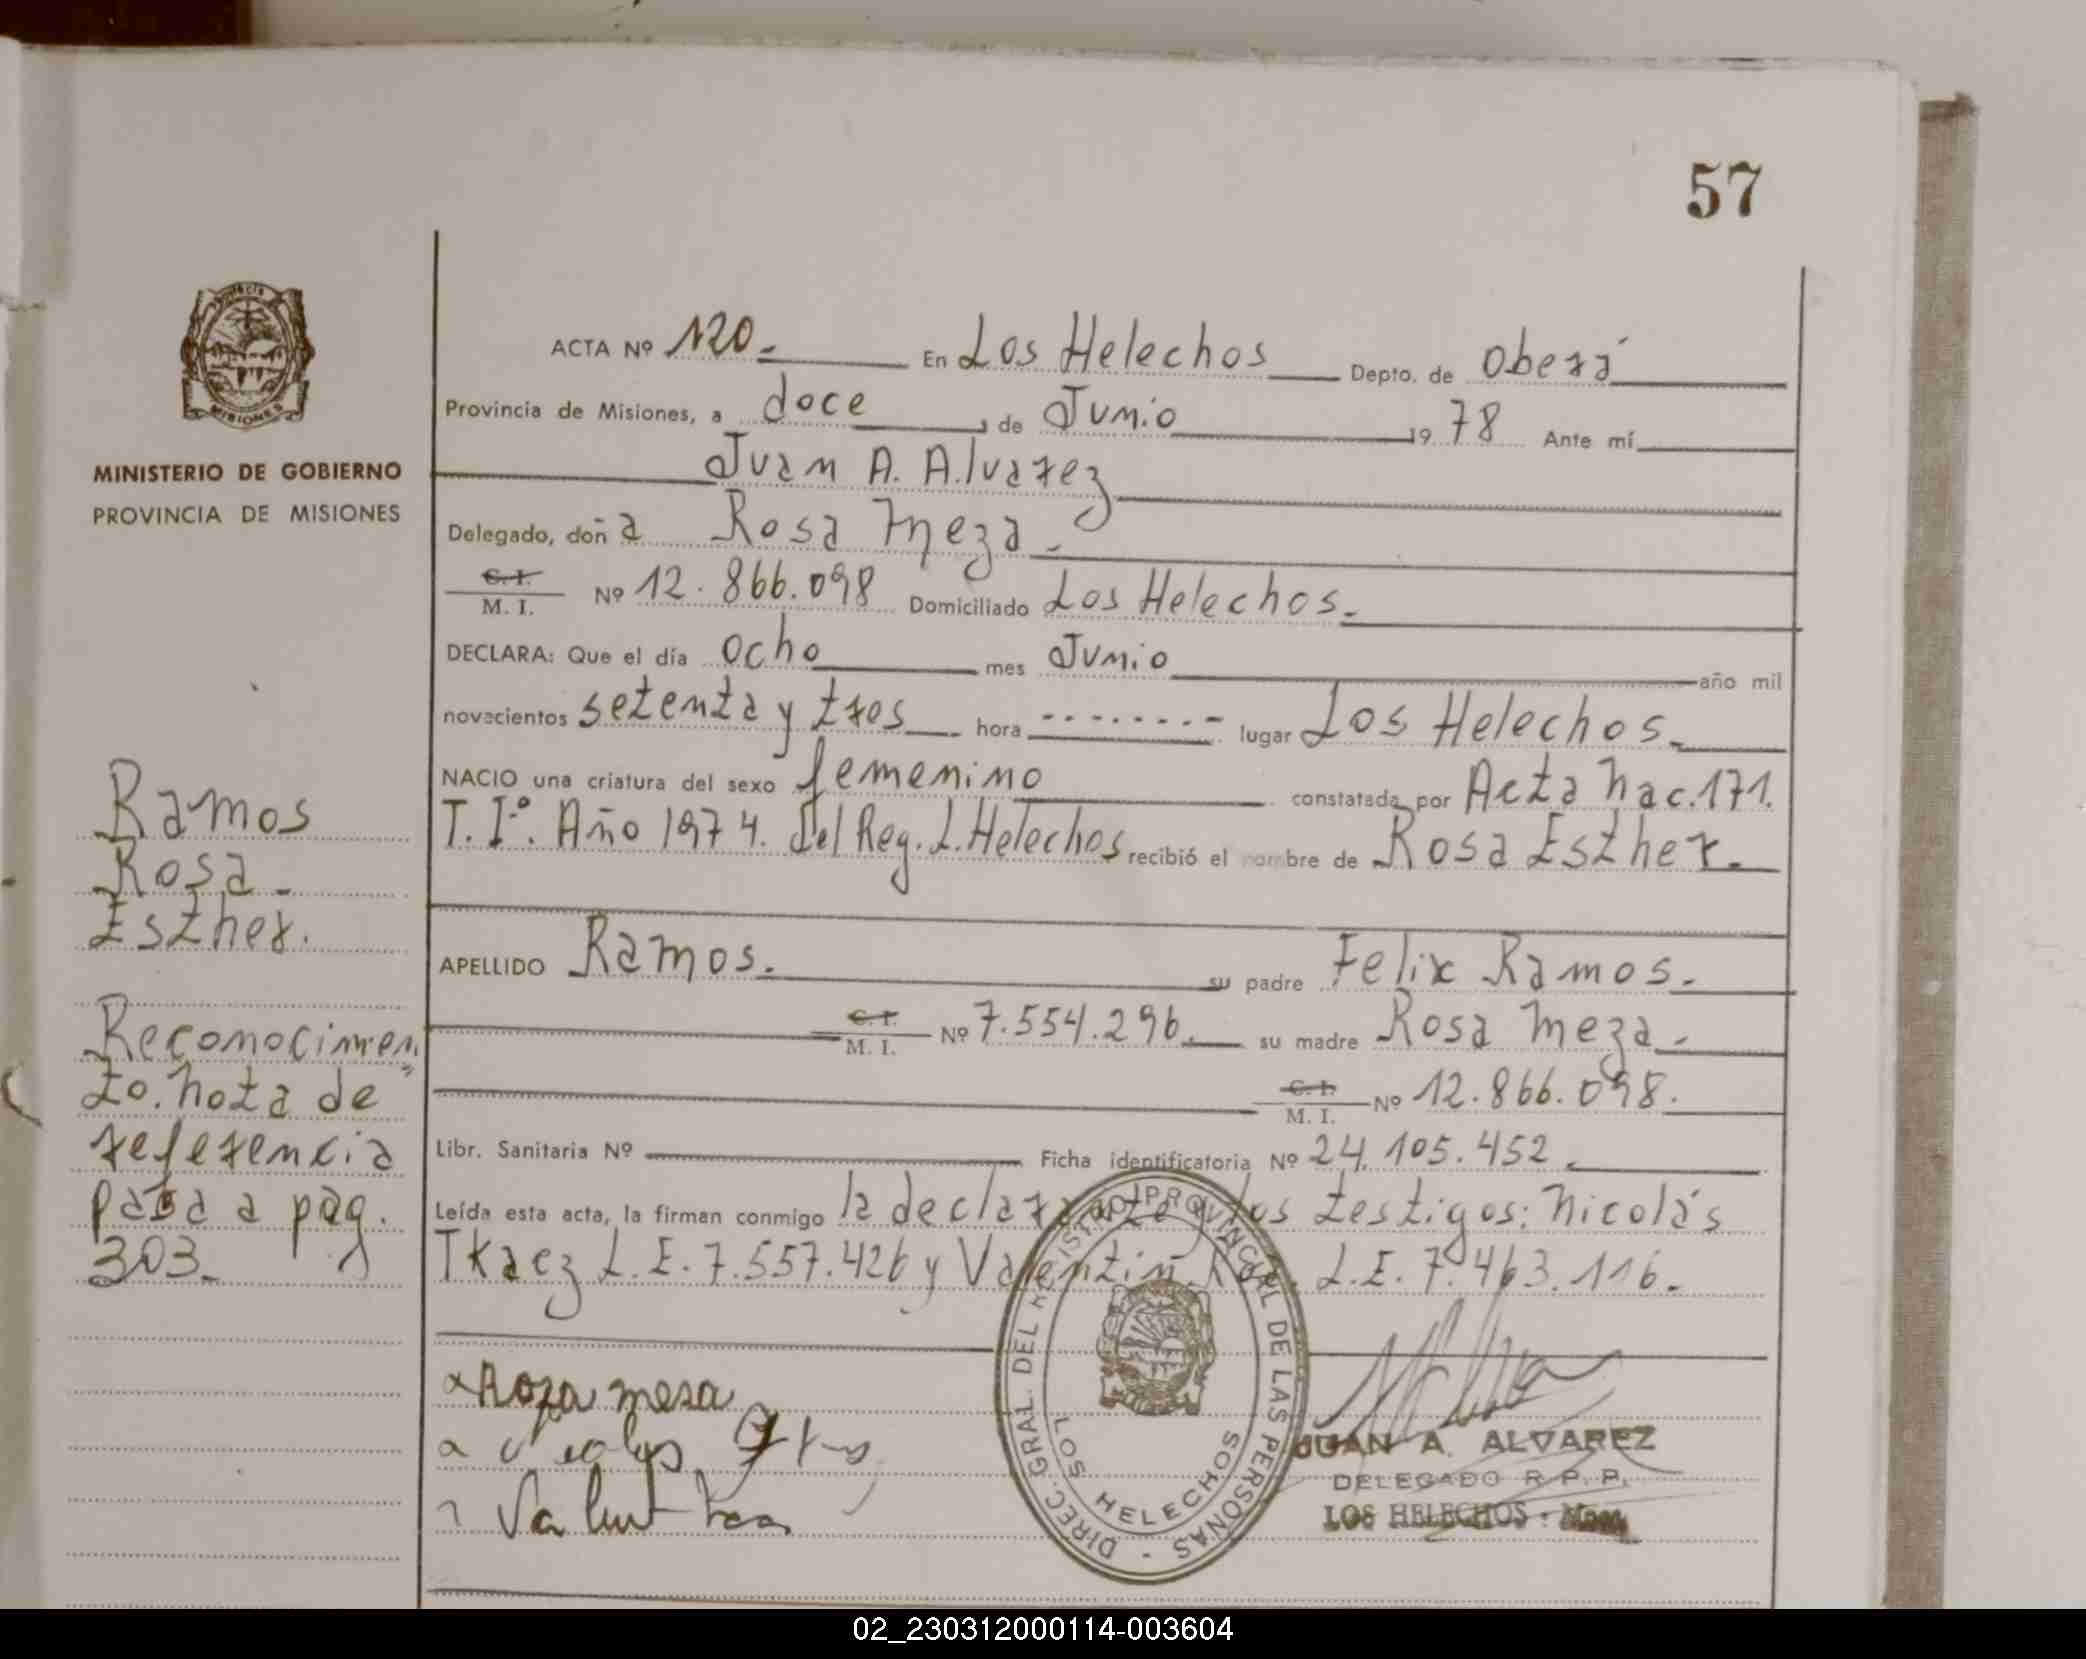 57
ACTA Nº 120. En Los Helechos Depto. de Oberá
Provincia de Misiones, a doce de Junio 1978 Ante mí
Juan A. Alvarez
MINISTERIO DE GOBIERNO
PROVINCIA DE MISIONES
Delegado, doña Rosa Meza.
C. I. M. I. Nº 12.866.098 Domiciliado Los Helechos.
DECLARA: Que el día ocho mes Junio año mil
novecientos setenta y tres hora -------- lugar Los Helechos.
NACIO una criatura del sexo femenino constatada por Acta Nac. 171.
T. Iº. Año 1974. del Reg. L. Helechos recibió el nombre de Rosa Esther.
Ramos
Rosa
Esther.
APELLIDO Ramos. su padre Felix Ramos.
C. I. M. I. Nº 7.554.296. su madre Rosa Meza.
C. I. M. I. Nº 12.866.098.
Reconocimien
to. Nota de
referencia
pasa a pág.
303.
Libr. Sanitaria Nº Ficha identificatoria Nº 24.105.452.
Leída esta acta, la firman conmigo la declarante y los testigos: Nicolás
Tkacz L.E. 7.557.426 y Valentin L.E. 7.463.116.
Roza mesa
DIREC. GRAL. DEL REGISTRO PROVINCIAL DE LAS PERSONAS - LOS HELECHOS
JUAN A. ALVAREZ
DELEGADO R. P. P.
LOS HELECHOS - Mnes
02_230312000114-003604